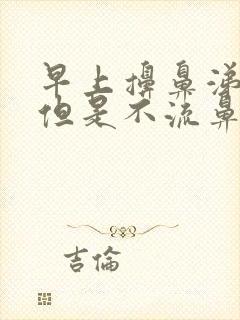 早上擤鼻涕
但是不流鼻
吉倫